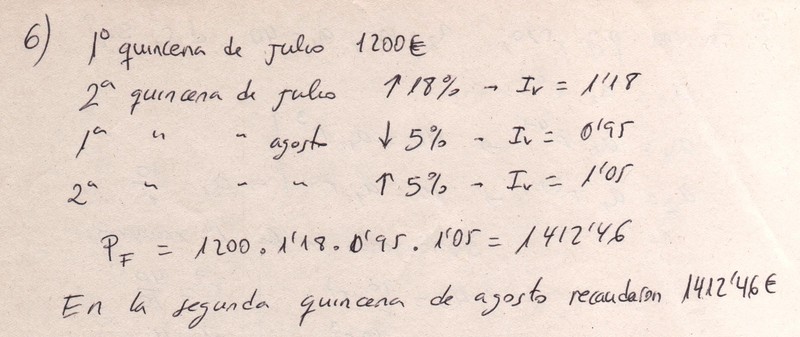 6) 1º quincena de julio 1200€
2ª quincena de julio ↑ 18% → Iv = 1'18
1ª " " agosto ↓ 5% → Iv = 0'95
2ª " " " ↑ 5% → Iv = 1'05
PF = 1200 . 1'18 . 0'95 . 1'05 = 1412'46
En la segunda quincena de agosto recaudaron 1412'46€